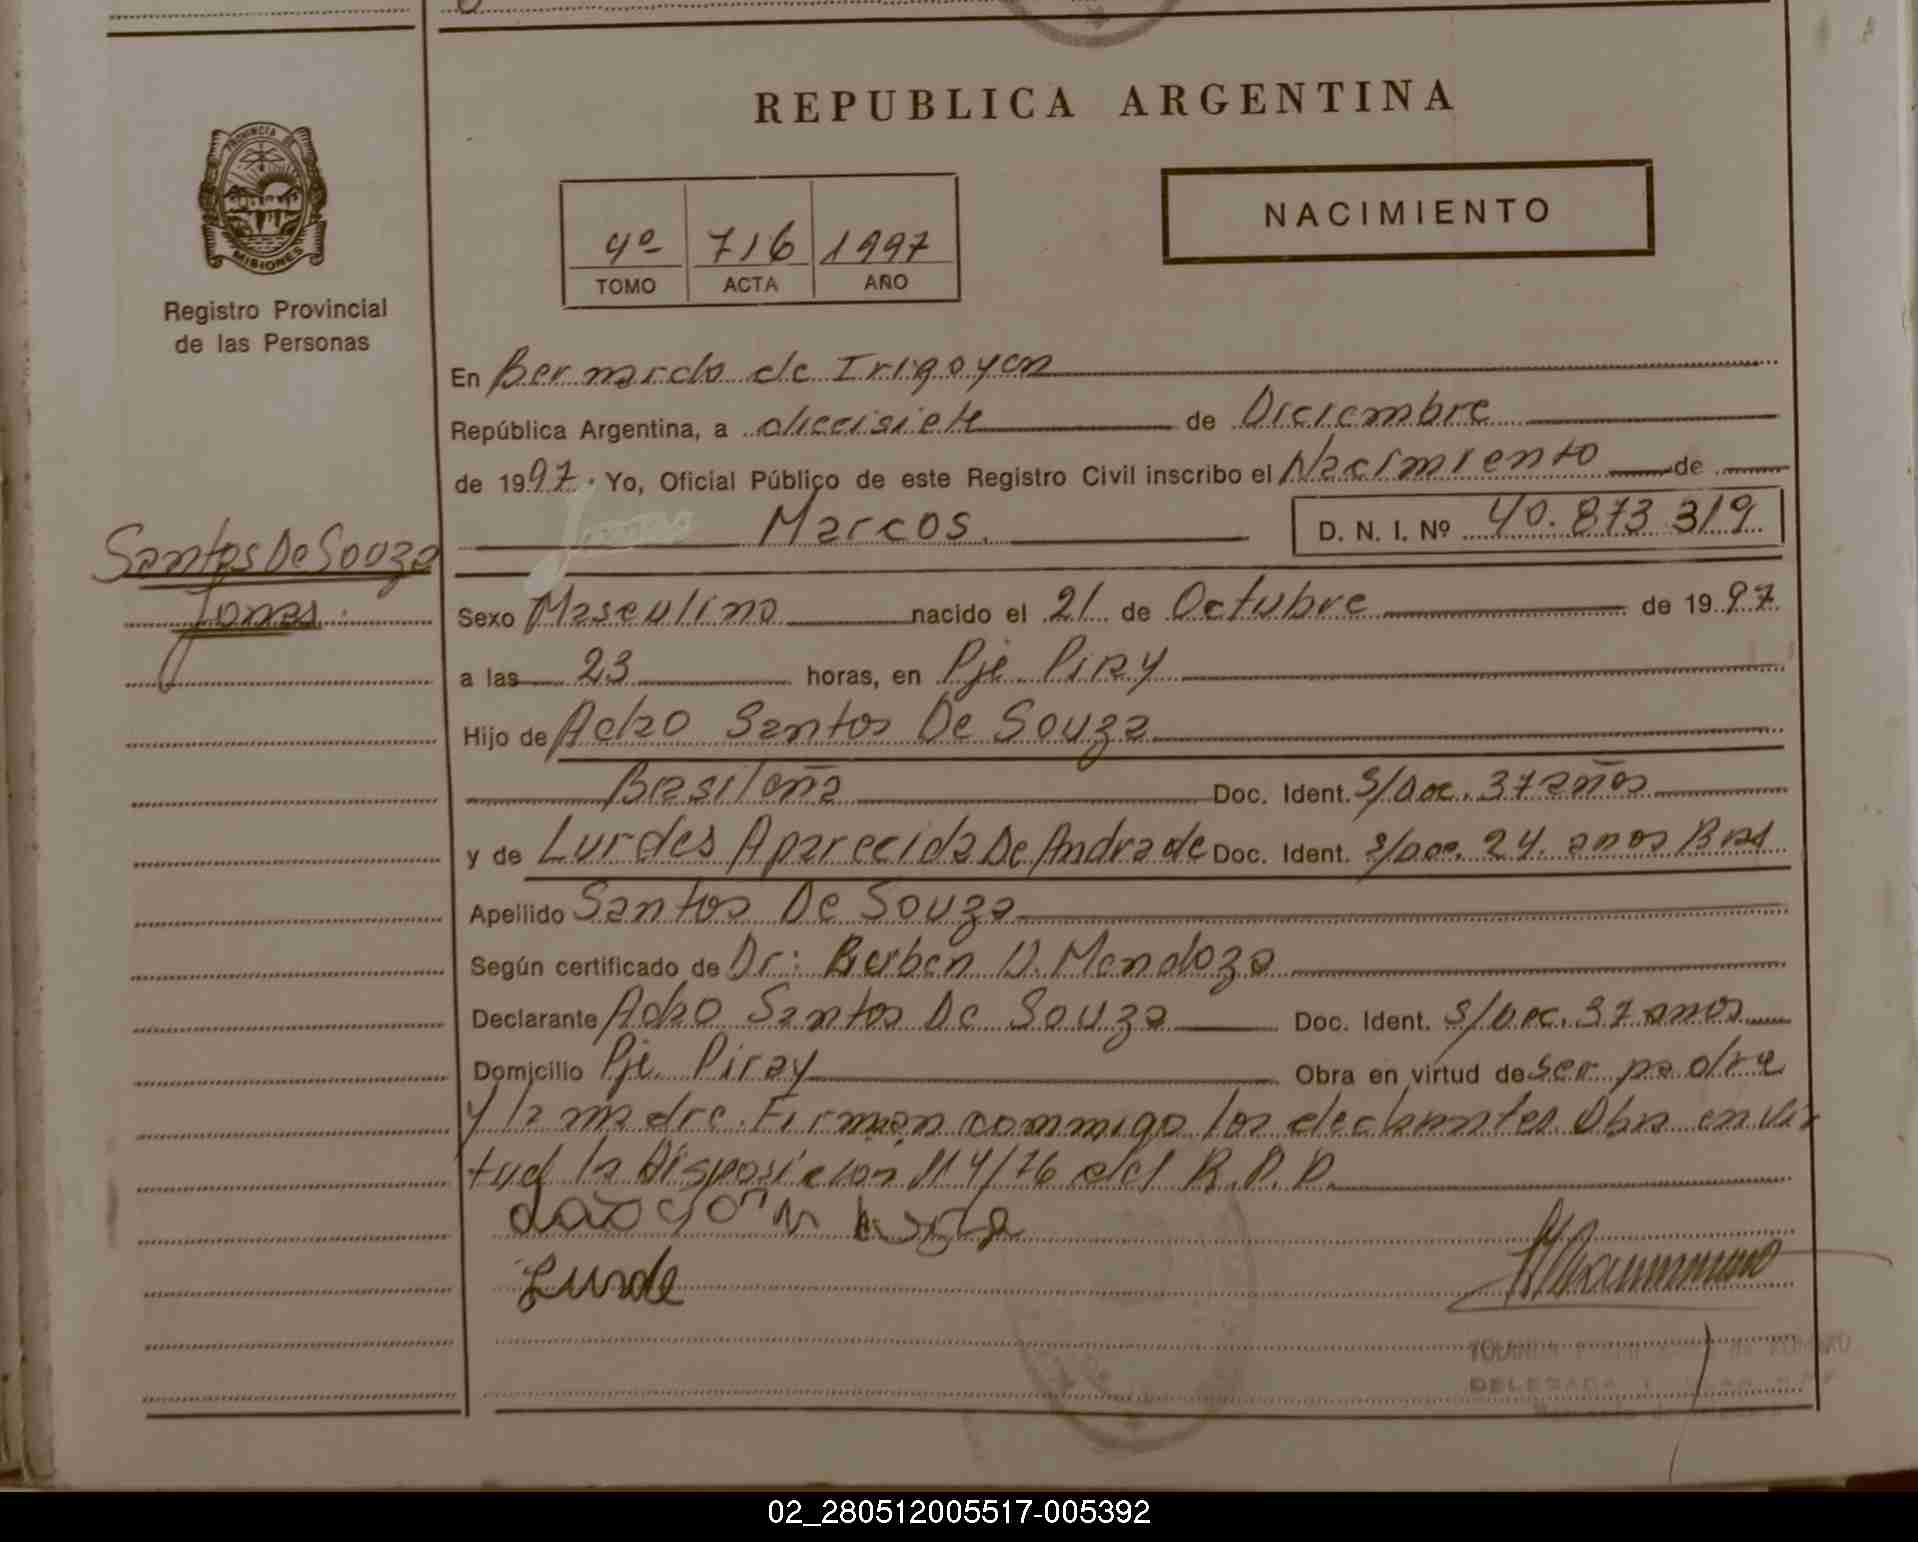 REPUBLICA ARGENTINA
PROVINCIA DE
MISIONES
Registro Provincial
de las Personas
4º 716 1997
TOMO ACTA AÑO
NACIMIENTO
En Bernardo de Irigoyen
República Argentina, a diecisiete de Diciembre
de 1997. Yo, Oficial Público de este Registro Civil inscribo el Nacimiento de
Marcos. D. N. I. Nº 40.873.319
Santos De Souza
Jonas.
Sexo Masculino nacido el 21 de Octubre de 1997
a las 23 horas, en Pje Piray
Hijo de Adão Santos De Souza
Brasileña Doc. Ident. S/Doc. 37 años
y de Lurdes Aparecida De Andrade Doc. Ident. S/Doc. 24. anos Bras
Apellido Santos De Souza
Según certificado de Dr: Mendoza
Declarante Adão Santos De Souza Doc. Ident. S/Doc. 37 anos
Domicilio Pje. Piray Obra en virtud de ser padre
y la madre. Firman conmigo los declarantes. Obra en vir
tud la Disposición 114/76 del R.P.P.
Lurde
DELEGADA
02_280512005517-005392